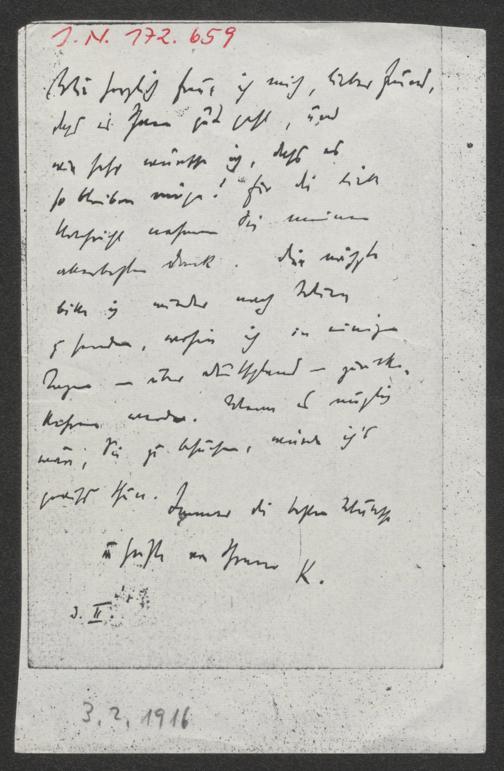 J. N. 172.659
Wie herzlich freue ich mich, lieber Freund,
daß es Ihnen gut geht, und
wie sehr wünsche ich, daß es
so bleiben möge! Für die liebe
Nachricht nehmen Sie meinen
allerbesten Dank. Die nächste
bitte ich wieder nach Wien
zu senden, wohin ich in einigen
Tagen — über Deutschland — zurück-
kehren werde. Wenn es möglich
wäre, Sie zu besuchen, würde ich's
gewiß thun. Immer die besten Wünsche
u Grüße von Ihrem K.
3. II.
3. 2. 1916